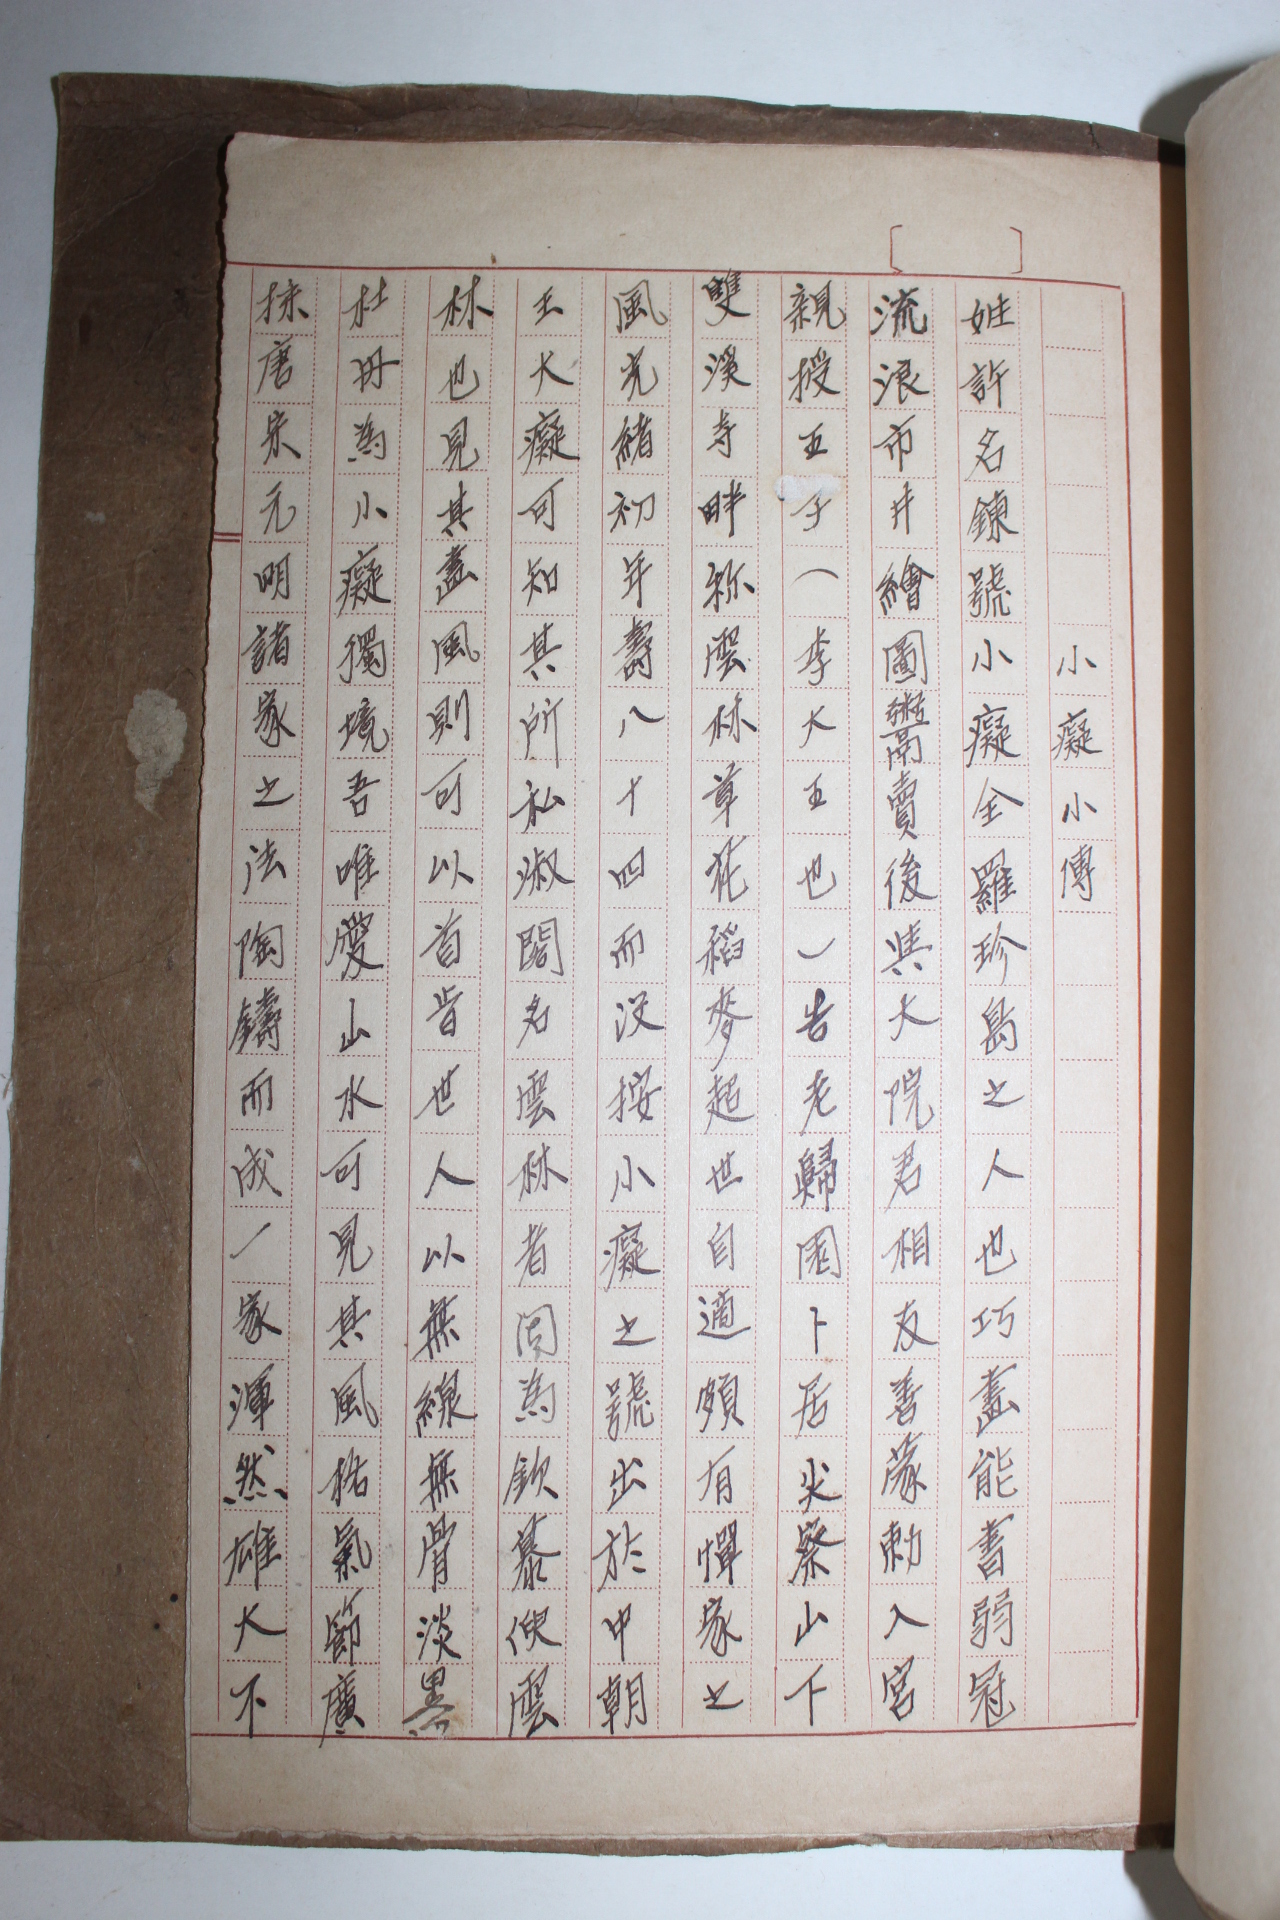 小癡小傳
姓許名鍊號小癡全羅珍島之人也巧畫能書弱冠
流浪市井繪圖鬻賣後與大院君相友善蒙勅入宮
親授玉子(李大王也)告老歸園卜居尖察山下
雙溪寺畔称雲林草花稻麥超世自適頗有憚家之
風光緖初年壽八十四而沒按小癡之號出於中朝
王大癡可知其所私淑閣名雲林者因為欽慕倪雲
林也見其畫風則可以首肯世人以無線無骨淡墨
杜冊為小癡獨境吾唯愛山水可見其風格氣節廣
抹唐宋元明諸家之法陶鑄而成一家渾然雄大不